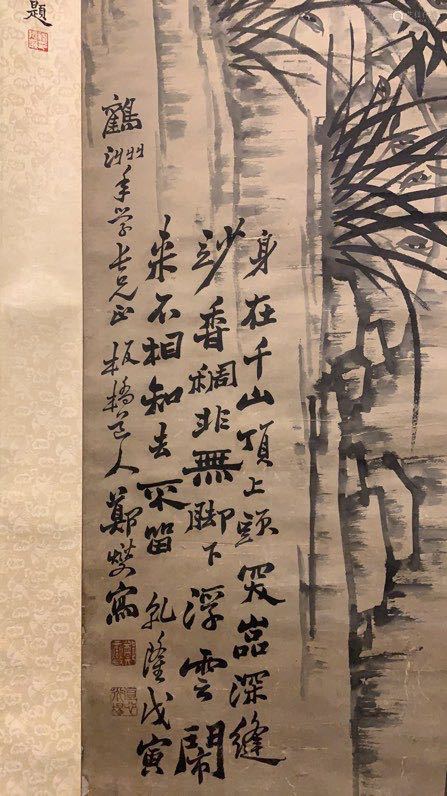 身在千山頂上頭突岩深縫
妙香稠非無脚下浮雲鬧
来不相知去不留 乹隆戊寅
鶴洲年学長兄正 板橋道人鄭燮寫
題